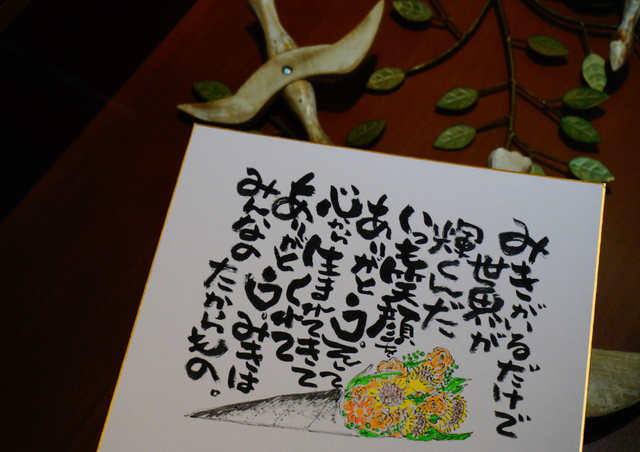 みきがいるだけで
世界が
輝くんだ
いつも笑顔を
ありがとう。そして
心から生まれてきて
ありがとうくれて
みんなの う。みきは
たからもの。